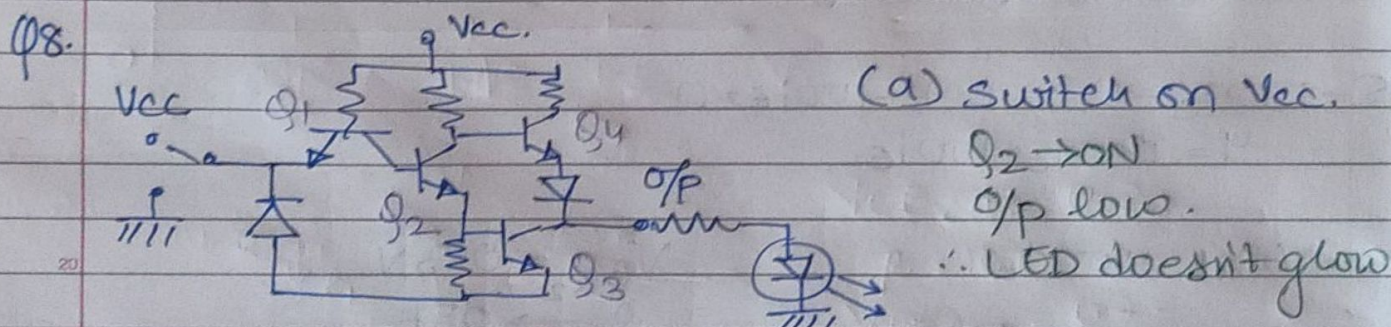 Q8.
Vcc.
Vcc
Q1
Q4
O/P
Q2
Q3
20
(a) Switch on Vcc.
Q2 → ON
O/p low.
∴ LED doesn't glow